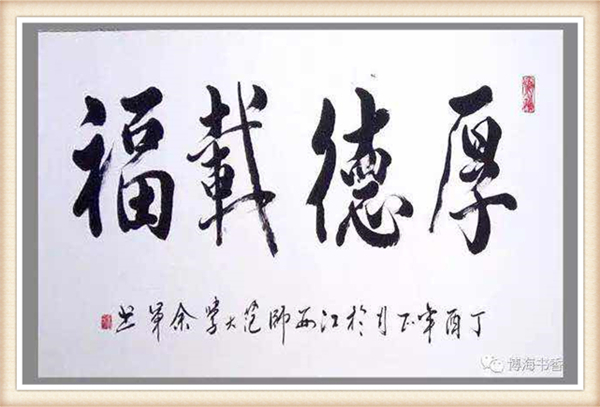 厚德載福
丁酉年正月於江西師范大學余军书
博海书香